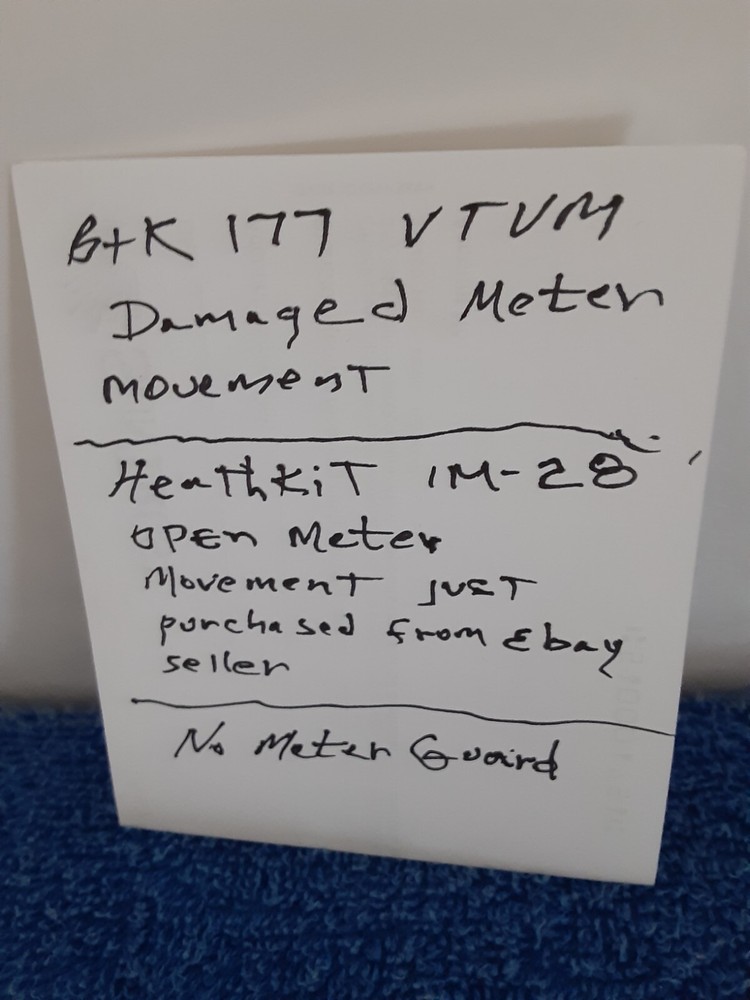 B+K 177 VTVM
Damaged Meter
Movement
HeathKiT IM-28
OPEn Meter
Movement JUST
purchased from Ebay
seller
No Meter Guaird